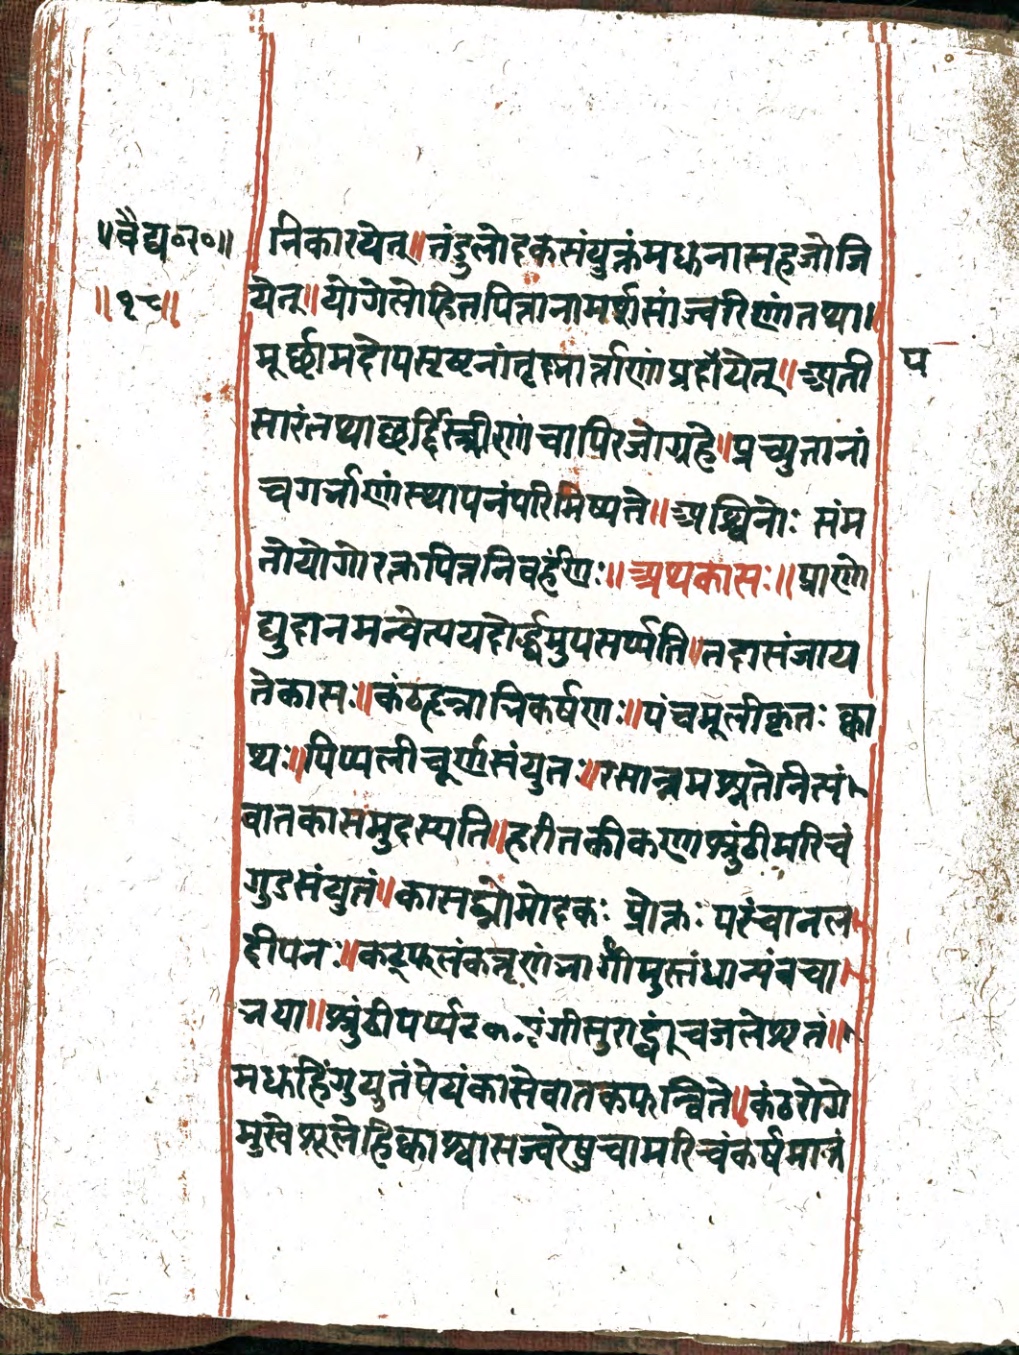 ॥वैद्य॰र॰॥
॥१८॥
निकारयेत्॥तंडुलोदकसंयुक्तंमधुनासहजोजि
येत्॥योगेलोहितपित्तानामर्शसांज्वरिणांतथा॥
मूर्छामदोपसृष्टानांतृष्नार्त्ताणंप्रदौयेत्॥अती
सारंतथाछर्द्दिस्त्रीणांचापिरजोग्रहे॥प्रच्युतानां
चगर्भाणांस्थापनंपरिमिष्यते॥अश्विनोः संम
तोयोगोरक्तपित्तनिवर्हणः॥अथकासः॥प्राणो
द्युदानमन्वेत्पयदोर्द्धमुपसर्प्पति॥तदासंजाय
तेकासः॥कंठहृन्नाभिकर्षणः॥पंचमूलीकृतः क्वा
थः॥पिप्पलीचूर्णसंयुतः॥रसान्नमश्नतेनित्यं
वातकासमुदस्यति॥हरीतकीकणाशुंठीमरिचं
गुडसंयुतं॥कासघ्नोमोदकः प्रोक्तः पसंचानल
दीपनः॥कट्फलंकत्तृणंभार्गीमुस्तंधान्यंवचा
भया॥शुंठीपर्प्पटकशृंगीसुराह्वांचजलेशृतं॥
मधुहिंगुयुतंपेयंकासेवातकफान्विते॥कंठरोगे
मुखेशूलेहिक्काश्वासज्वरेषुचामरिचंकर्षमात्रं
प